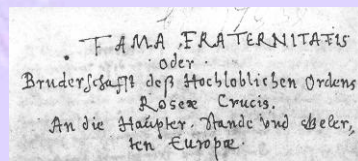 FAMA FRATERNITATIS
oder
Bruderschafft deß Hochloblichen Ordens
Roseæ Crucis.
An die Haüpter, Stande vnd Geler,
ten Europæ.